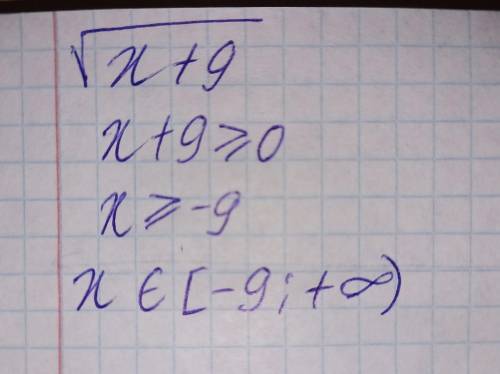 √(x+9)
x+9⩾0
x⩾-9
x∈[-9;+∞)